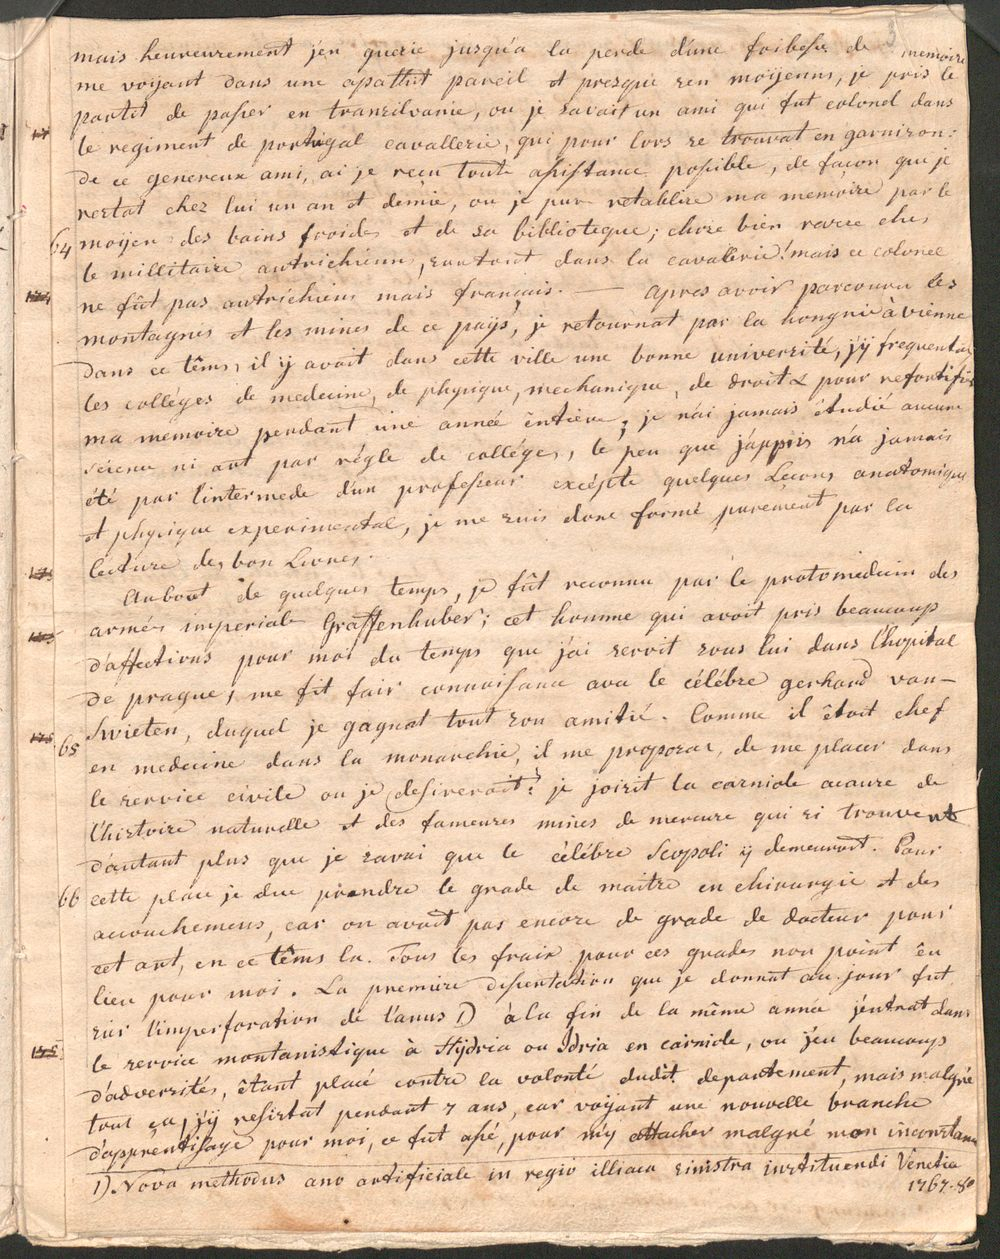 3
mais heureurement j'en guerie jusqu'a la perde d'une foibesse de memoire
me voyant dans une apathiè pareil et presque sen moÿenns, je pris le
partit de passer en transilvanie, ou je savais un ami qui fut colonel dans
le regiment de portugal cavallerie, qui pour lors se trouvat en garnizon:
De ce genereux ami, ai je recu toute assistance possible, de façon que je
restat chez lui un an et demie, ou je pus retablire ma memoire par le
64 moÿen des bains froides et de sa biblioteque; chose bien raree ches
le millitaire autrichienn, surtout dans la cavallerie! mais ce colonel
ne fût pas autrichiens mais français. — Apres avoir parcouru les
montagnes et les mines de ce païjs, je retournat par la hongrie à vienne
Dans ce têms, il ÿ avait dans cette ville une bonne université, j'ÿ frequentai
les colléges de medecine, de physique, mechanique, de droit & pour refortifier
ma memoire pendant une année êntière; je n'ai jamais êtudié aucune
science ni art par régle de colléges, le peu que j'appris n'a jamais
été par l'intermede d'un professeur excépte quelques Lecons anatomique
et physique experimental, je me suis donc formé purement par la
lecture des bon Livres.
Aubout de quelques temps, je fût reconnu par le protomedecin des
armés imperiale Graffenhuber; cet homme qui avoit pris beaucoup
d'affections pour moi du temps que j'ai servit sous lui dans l'hopital
de prague, me fit fair connaissance avec le célébre gerhard van-
65 Swieten, duquel je gagnat tout son amitié. Comme il êtoit chef
en medecine dans la monarchie, il me proposat, de me placer dans
le service civile ou je desirerait? je joisit la carniole acause de
l'histoire naturelle et des fameuses mines de mercure qui si trouvent
d'autant plus que je savai que le célébre Scopoli ÿ demeurait. Pour
66 cette place je due prendre le grade de maitre en chirurgie et des
accouchemens, car on avait pas encore de grade de docteur pour
cet art, en ce têms la. Tous les frais pour ces grades non point êu
lieu pour moi. La premiere disentation que je donnat au jour fut
sur l'imperforation de l'anus 1) à la fin de la même année j'entrat dans
le service montanistique à Hÿdria ou Idria en carniole, ou j'eu beaucoup
d'adversités, êtant placé contre la volonté dudit departement, mais malgré
tout ça, j'ÿ restat pendant 7 ans, car voÿant une nouvelle branche
d'apprentissage pour moi, ce fut assé, pour m'ÿ attacher malgré mon inconstance
1). Nova methodus ano artificiale in regio illiaca sinistra instituendi Venetia
1767. 8º